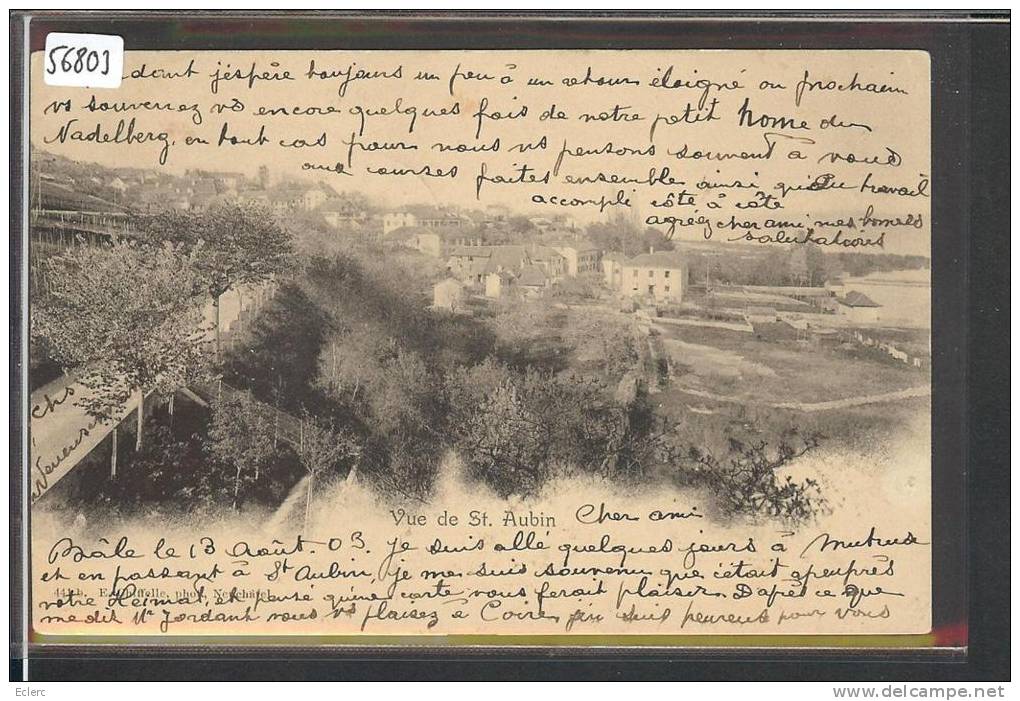 56803
dont j'espère toujours un peu à un retour éloigné ou prochain
vs souvenez vs encore quelques fois de notre petit home du
Nadelberg, en tout cas pour nous ns pensons souvent à vous
aux courses faites ensemble ainsi qu'au travail
accompli côte à côte
agréez cher ami, mes bonnes
salutations
Vue de St. Aubin Cher ami
Bâle le 13 Août. 03. Je suis allé quelques jours à Mutrux
et en passant à St Aubin, je me suis souvenu que c'était à peu près
votre Heimat, et pensé qu'une carte vous ferait plaisir. D'après ce que
441b. E. Chiffelle, phot. Neuchâtel
me dit Mr Jordant vous vs plaisez à Coire j'en suis heureux pour vous
Eclerc
www.delcampe.net